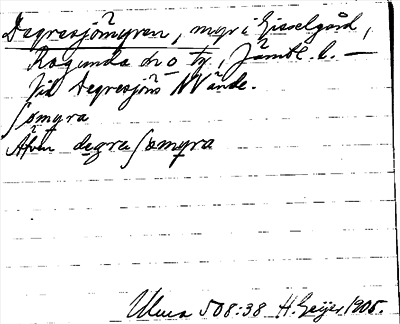 Degresjömyren, myr i Gisselgård,
Ragunda sn o tg, Jämtl. l. —
Vid Degresjöns NV ände.
somyra
Även degresomyra
Ulma 508:38 H. Geijer 1905.